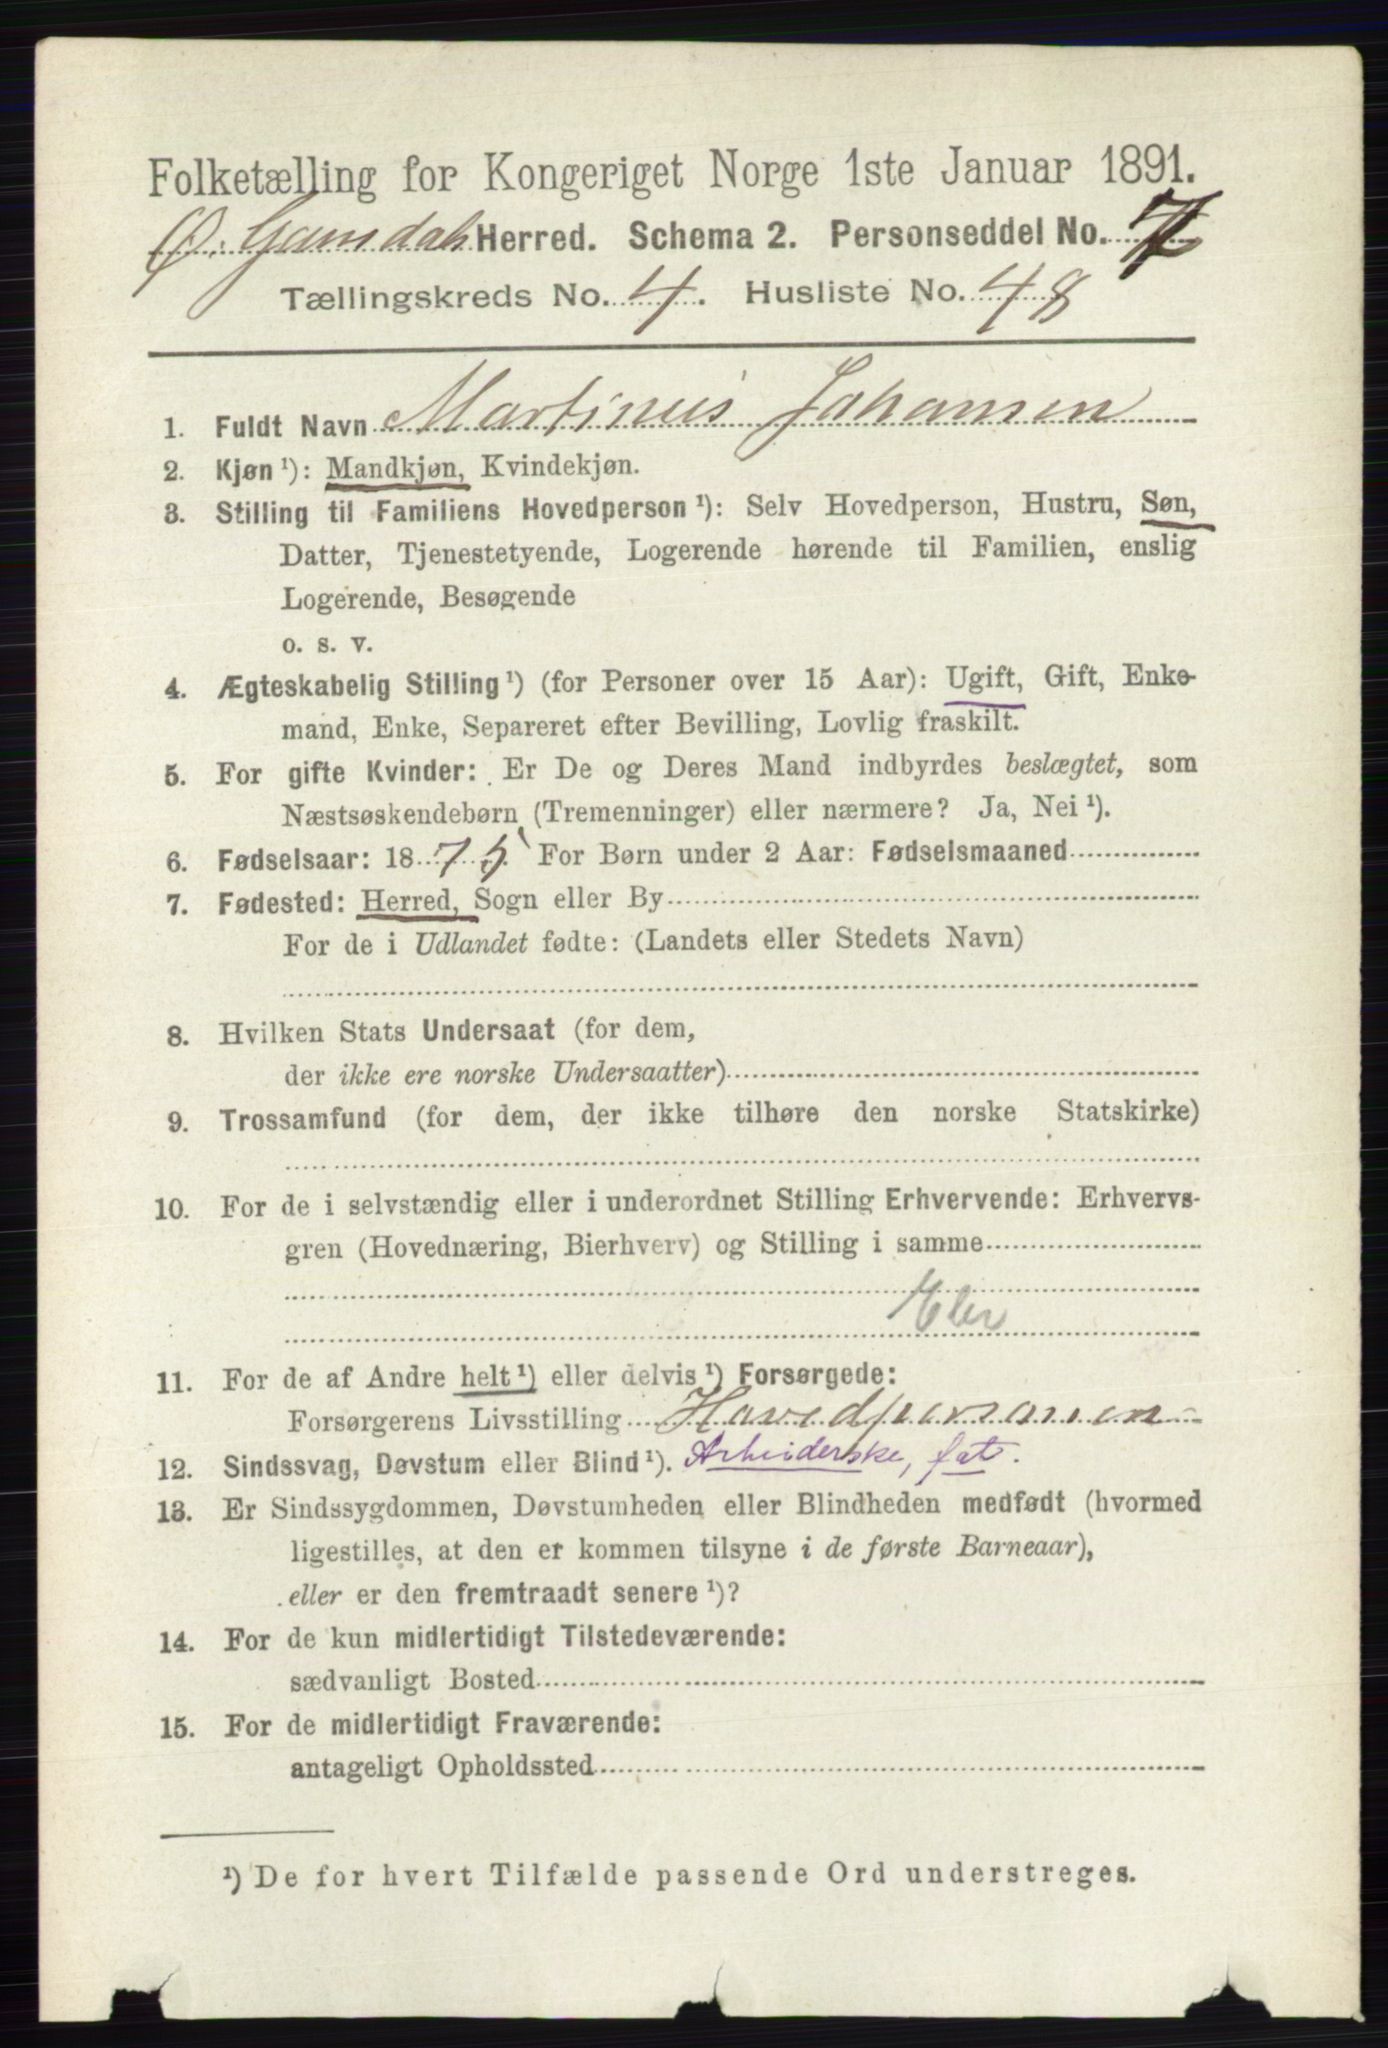 Folketælling for Kongeriget Norge 1ste Januar 1891.
Ø. Gausdal Herred. Schema 2. Personseddel No. 7
Tællingskreds No. 4. Husliste No. 48
1. Fuldt Navn Martinus Johansen
2. Kjøn ¹): Mandkjøn, Kvindekjøn.
3. Stilling til Familiens Hovedperson ¹): Selv Hovedperson, Hustru, Søn,
Datter, Tjenestetyende, Logerende hørende til Familien, enslig
Logerende, Besøgende
o. s. v.
4. Ægteskabelig Stilling ¹) (for Personer over 15 Aar): Ugift, Gift, Enke-
mand, Enke, Separeret efter Bevilling, Lovlig fraskilt.
5. For gifte Kvinder: Er De og Deres Mand indbyrdes beslægtet, som
Næstsøskendebørn (Tremenninger) eller nærmere? Ja, Nei ¹).
6. Fødselsaar: 1875. For Børn under 2 Aar: Fødselsmaaned
7. Fødested: Herred, Sogn eller By
For de i Udlandet fødte: (Landets eller Stedets Navn)
8. Hvilken Stats Undersaat (for dem,
der ikke ere norske Undersaatter)
9. Trossamfund (for dem, der ikke tilhøre den norske Statskirke)
10. For de i selvstændig eller i underordnet Stilling Erhvervende: Erhvervs-
gren (Hovednæring, Bierhverv) og Stilling i samme
Elev
11. For de af Andre helt ¹) eller delvis ¹) Forsørgede:
Forsørgerens Livsstilling Hovedpersonen
12. Sindssvag, Døvstum eller Blind ¹). Arbeiderske, fat.
13. Er Sindssygdommen, Døvstumheden eller Blindheden medfødt (hvormed
ligestilles, at den er kommen tilsyne i de første Barneaar),
eller er den fremtraadt senere ¹)?
14. For de kun midlertidigt Tilstedeværende:
sædvanligt Bosted
15. For de midlertidigt Fraværende:
antageligt Opholdssted
¹) De for hvert Tilfælde passende Ord understreges.